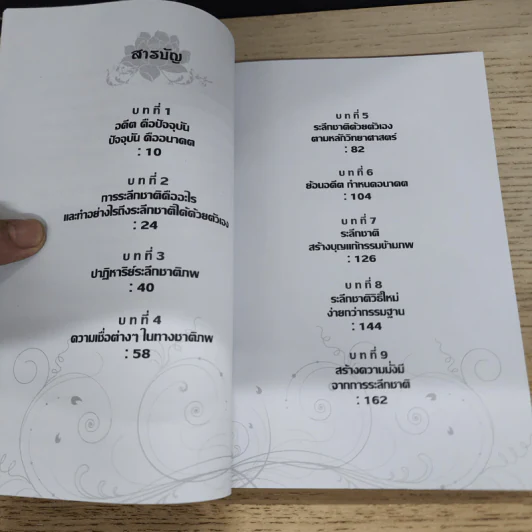 สารบัญ
บทที่ 1
อดีต คือปัจจุบัน
ปัจจุบัน คืออนาคต
: 10
บทที่ 2
การระลึกชาติคืออะไร
และทำอย่างไรถึงระลึกชาติได้ด้วยตัวเอง
: 24
บทที่ 3
ปาฏิหาริย์ระลึกชาติภพ
: 40
บทที่ 4
ความเชื่อต่างๆ ในทางชาติภพ
: 58
บทที่ 5
ระลึกชาติด้วยตัวเอง
ตามหลักวิทยาศาสตร์
: 82
บทที่ 6
ย้อนอดีต กำหนดอนาคต
: 104
บทที่ 7
ระลึกชาติ
สร้างบุญแก้กรรมข้ามภพ
: 126
บทที่ 8
ระลึกชาติวิธีใหม่
ง่ายกว่ากรรมฐาน
: 144
บทที่ 9
สร้างความมั่งมี
จากการระลึกชาติ
: 162